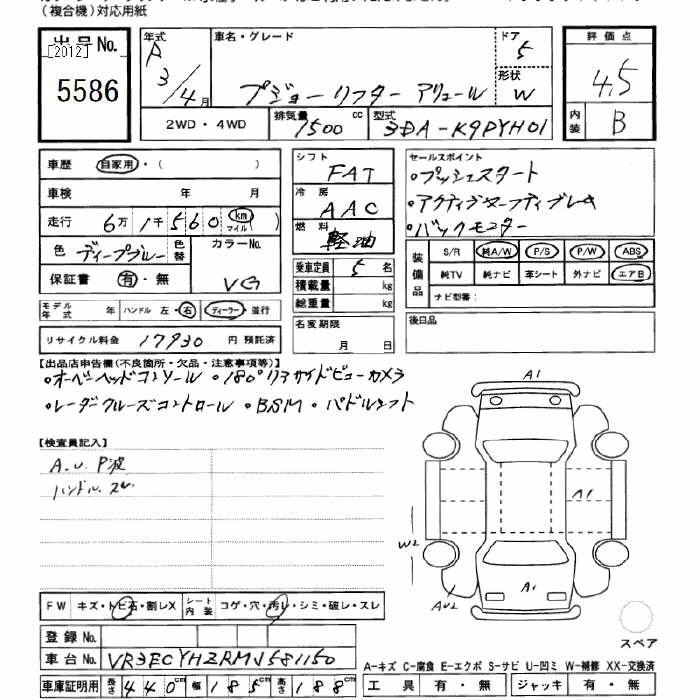 （複合機）対応用紙
出品No.
[2012]
5586
年式
R
3/4月
車名・グレード
プジョー リフター アリュール
ドア
5
形状
W
評価点
4.5
内装
B
2WD・4WD
排気量
1500
cc
型式
3DA-K9PYH01
車歴
自家用・（ ）
車検
年
月
走行
6万1千560
km
マイル
色
ディープブルー
色替
カラーNo.
VG
保証書
有・無
シフト
FAT
冷房
AAC
燃料
軽油
乗車定員
5
名
積載量
kg
総重量
kg
名変期限
月
日
セールスポイント
・プッシュスタート
・アクティブセーフティブレーキ
・バックモニター
装備品
S/R
純A/W
P/S
P/W
ABS
純TV
純ナビ
革シート
外ナビ
エアB
ナビ型番：
後日品
モデル年式
年
ハンドル
左・右
ディーラー・並行
リサイクル料金
17930
円
預託済
【出品店申告欄（不良箇所・欠品・注意事項等）】
・オーバーヘッドコンソール ・180°リアサイドビューカメラ
・レーダークルーズコントロール ・BSM ・パドルシフト
【検査員記入】
A.U P波
ハンドル スレ
A1
A1
W2
A1
AU2
FW
キズ・トビ石・割レX
シート内装
コゲ・穴・汚レ・シミ・破レ・スレ
スペア
登録No.
車台No.
VR3ECYHZRMJ581150
A-キズ C-腐食 E-エクボ S-サビ U-凹ミ W-補修 XX-交換済
車庫証明用
長さ
440cm
幅
185cm
高さ
188cm
工具
有・無
ジャッキ
有・無